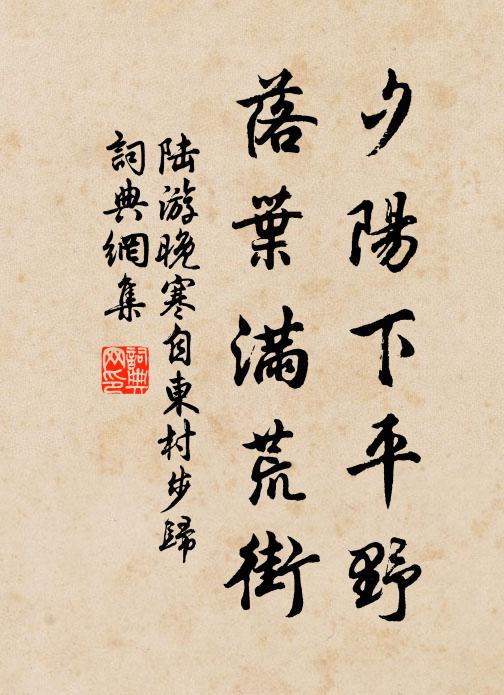 夕陽下平野
落葉滿荒街
陸游晚寒自東村步歸
詞典網集
詞典
网印